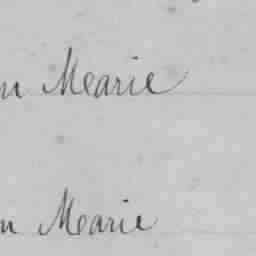 n Mearie
n Mearie